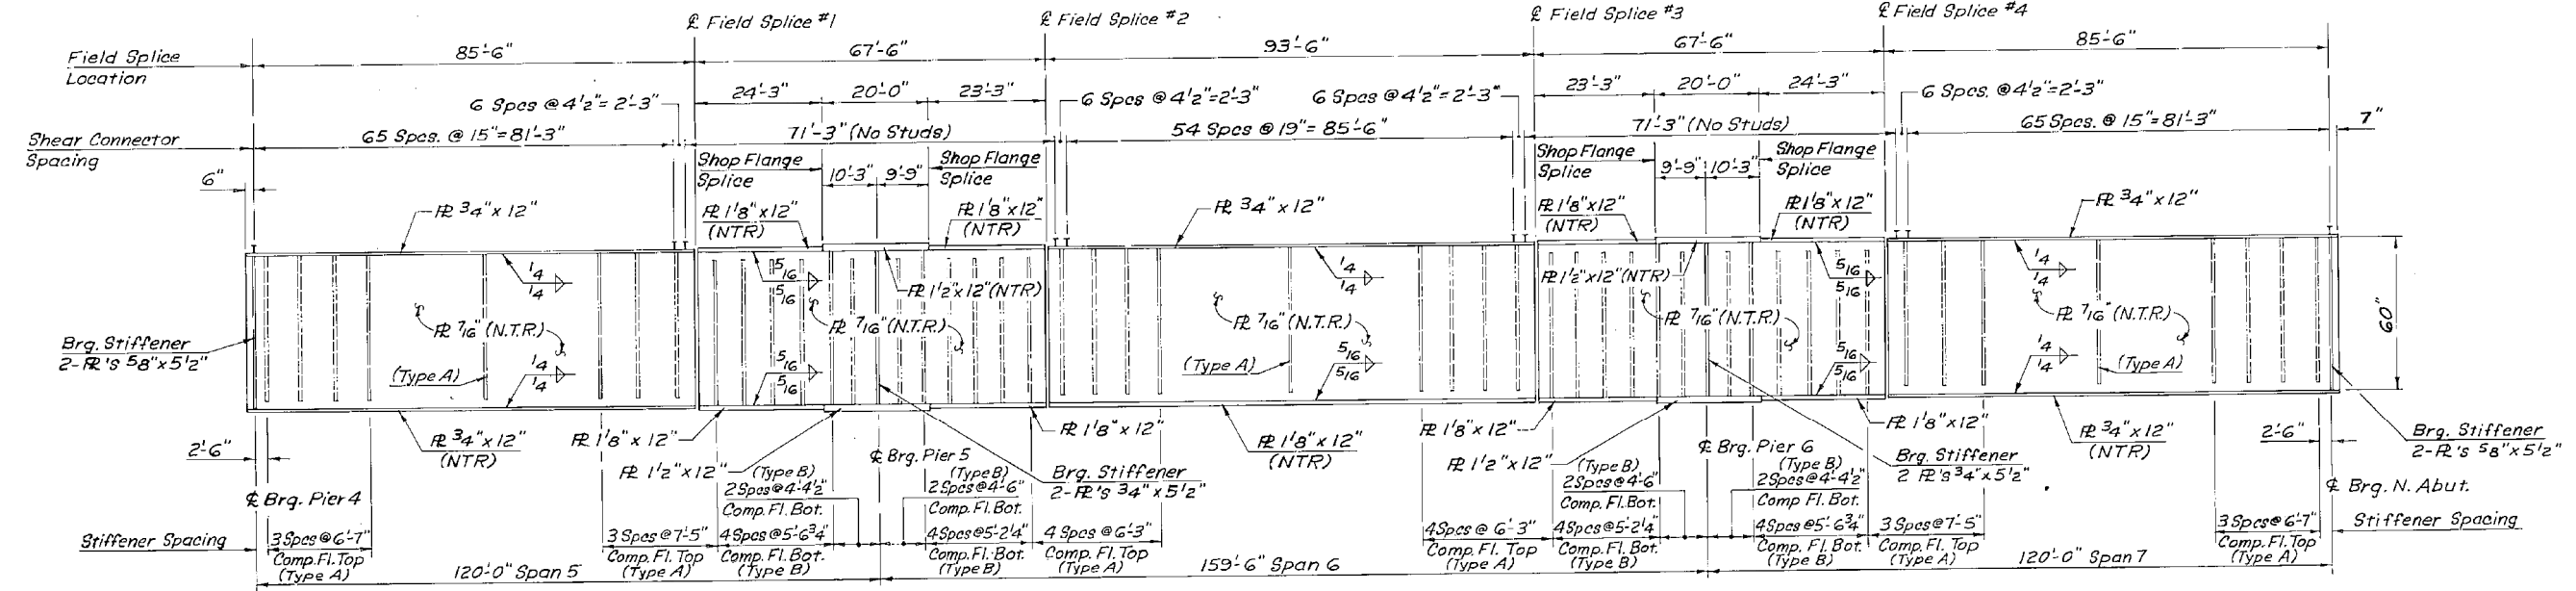 ℄ Field Splice #1
℄ Field Splice #2
℄ Field Splice #3
℄ Field Splice #4
Field Splice
Location
85'-6"
67'-6"
93'-6"
67'-6"
85'-6"
24'-3"
20'-0"
23'-3"
23'-3"
20'-0"
24'-3"
6 Spcs @ 4½" = 2'-3"
6 Spcs @ 4½" = 2'-3"
6 Spcs @ 4½" = 2'-3"
6 Spcs. @ 4½" = 2'-3"
Shear Connector
Spacing
65 Spcs. @ 15" = 81'-3"
71'-3" (No Studs)
54 Spcs @ 19" = 85'-6"
71'-3" (No Studs)
65 Spcs. @ 15" = 81'-3"
7"
6"
Shop Flange
Splice
10'-3"
9'-9"
Shop Flange
Splice
Shop Flange
Splice
9'-9"
10'-3"
Shop Flange
Splice
PL ¾" x 12"
PL 1⅛" x 12"
(NTR)
PL 1⅛" x 12"
(NTR)
PL ¾" x 12"
PL 1⅛" x 12"
(NTR)
PL 1⅛" x 12"
(NTR)
PL ¾" x 12"
1/4
1/4
5/16
5/16
PL 1½" x 12" (NTR)
1/4
1/4
PL 1½" x 12" (NTR)
5/16
5/16
1/4
1/4
PL 7/16" (N.T.R.)
PL 7/16" (N.T.R.)
PL 7/16" (N.T.R.)
PL 7/16" (N.T.R.)
PL 7/16" (N.T.R.)
60"
Brg. Stiffener
2-PL's ⅝" x 5½"
(Type A)
1/4
1/4
5/16
5/16
(Type A)
5/16
5/16
5/16
5/16
1/4
1/4
(Type A)
2'-6"
PL ¾" x 12"
(NTR)
PL 1⅛" x 12"
PL 1½" x 12"
℄ Brg. Pier 5
PL 1⅛" x 12"
Brg. Stiffener
2-PL's ¾" x 5½"
PL 1⅛" x 12"
(NTR)
PL 1⅛" x 12"
PL 1½" x 12"
℄ Brg. Pier 6
PL 1⅛" x 12"
Brg. Stiffener
2 PL's ¾" x 5½"
PL ¾" x 12"
(NTR)
2'-6"
Brg. Stiffener
2-PL's ⅝" x 5½"
℄ Brg. Pier 4
℄ Brg. N. Abut.
(Type B)
2 Spcs @ 4'-4½"
Comp. Fl. Bot.
(Type B)
2 Spcs @ 4'-6"
Comp. Fl. Bot.
(Type B)
2 Spcs @ 4'-6"
Comp. Fl. Bot.
(Type B)
2 Spcs @ 4'-4½"
Comp. Fl. Bot.
Stiffener Spacing
3 Spcs @ 6'-7"
Comp. Fl. Top
(Type A)
3 Spcs @ 7'-5"
Comp. Fl. Top
(Type A)
4 Spcs @ 5'-6¾"
Comp. Fl. Bot.
(Type B)
4 Spcs @ 5'-2¼"
Comp. Fl. Bot.
(Type B)
4 Spcs @ 6'-3"
Comp. Fl. Top
(Type A)
4 Spcs @ 6'-3"
Comp. Fl. Top
(Type A)
4 Spcs @ 5'-2¼"
Comp. Fl. Bot.
(Type B)
4 Spcs @ 5'-6¾"
Comp. Fl. Bot.
(Type B)
3 Spcs @ 7'-5"
Comp. Fl. Top
(Type A)
3 Spcs @ 6'-7"
Comp. Fl. Top
(Type A)
Stiffener Spacing
120'-0" Span 5
159'-6" Span 6
120'-0" Span 7